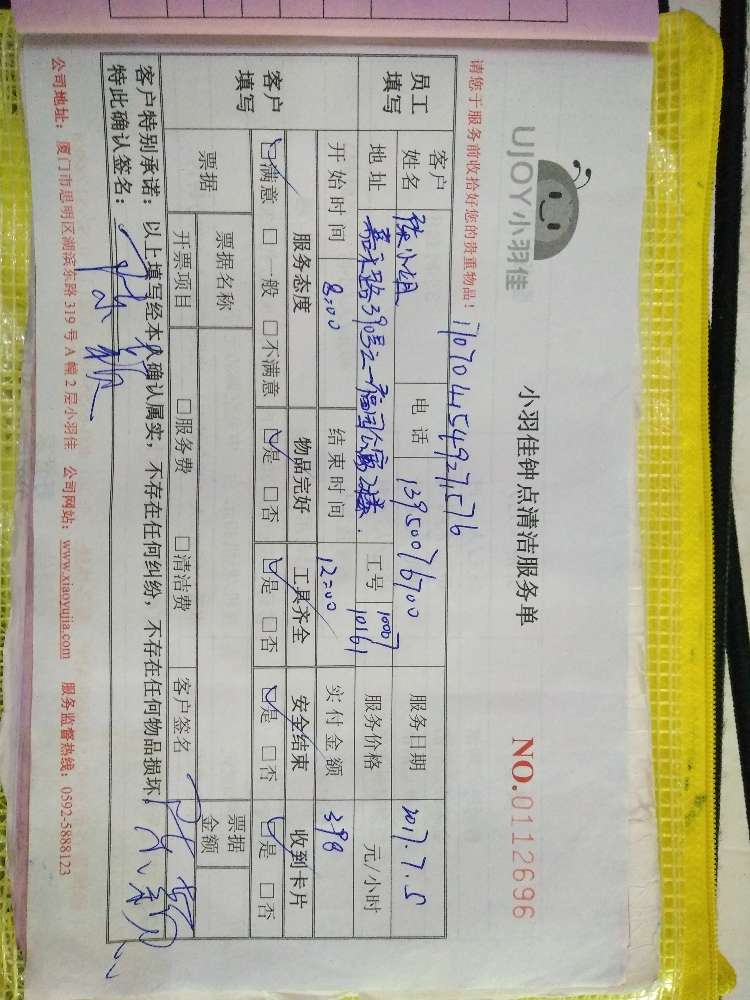 UJOY小羽佳
小羽佳钟点清洁服务单
NO.0112696
请您于服务前收拾好您的贵重物品!
员工填写
客户姓名
小姐
电话
13950076700
服务日期
2017.7.5
地址
工号
10007
10161
服务价格
元/小时
开始时间
8:00
结束时间
12:00
实付金额
398
客户填写
服务态度
物品完好
工具齐全
安全结束
收到卡片
☑满意 □一般 □不满意
☑是 □否
☑是 □否
☑是 □否
☑是 □否
票据
票据名称
票据金额
开票项目
□服务费 □清洁费
客户签名
客户特别承诺:以上填写经本人确认属实,不存在任何纠纷,不存在任何物品损坏
特此确认签名:
公司地址:厦门市思明区湖滨东路319号A幢2层小羽佳 公司网站:www.xiaoyujia.com 服务监督热线:0592-5888123